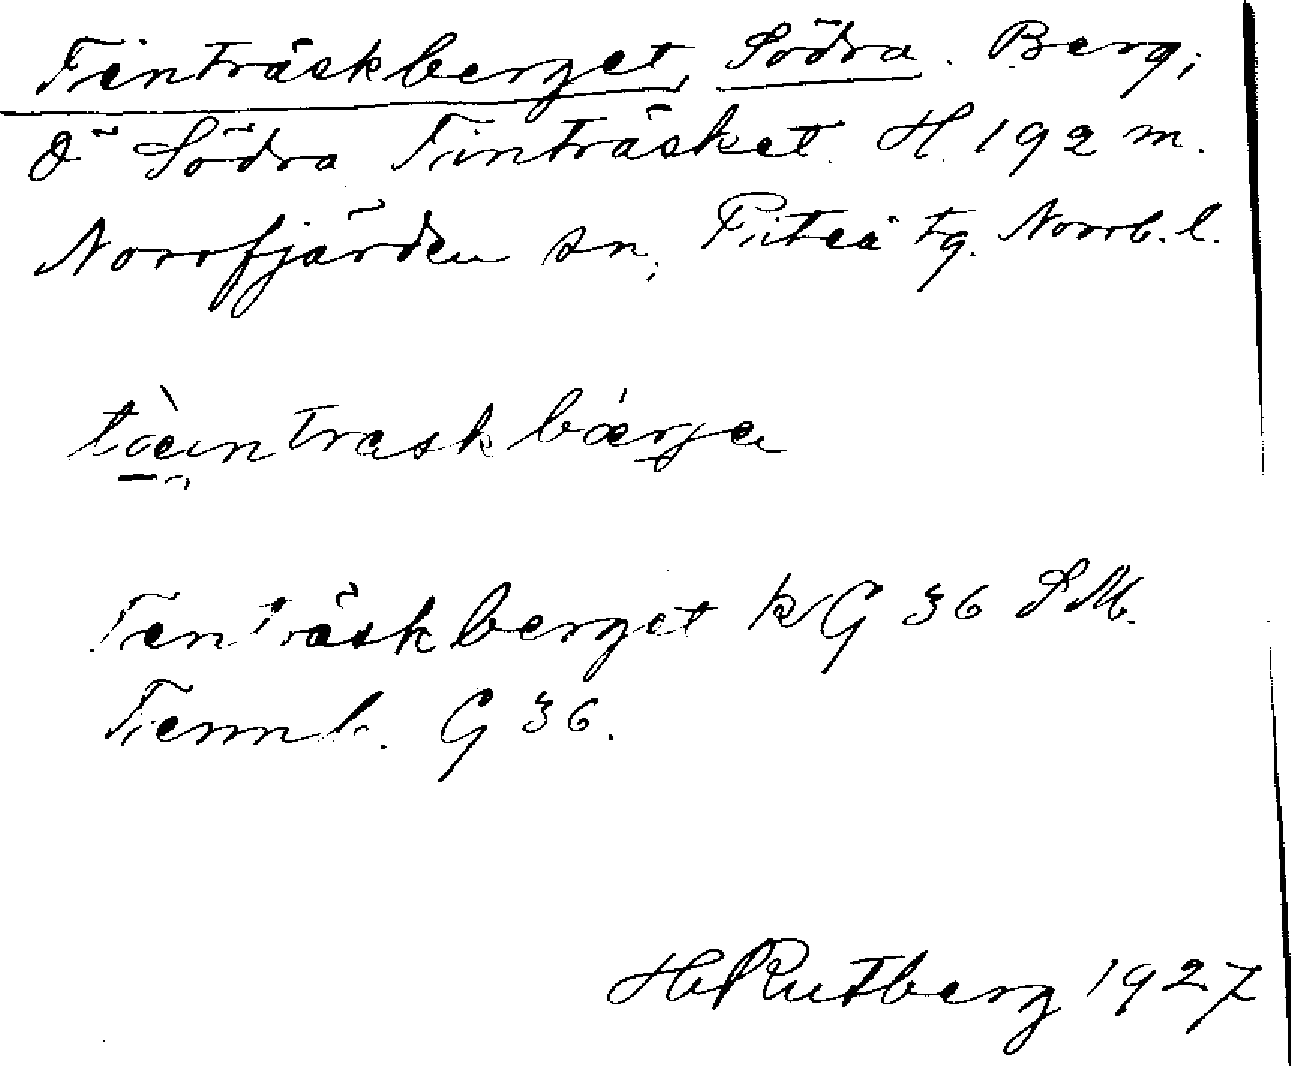 Tenträskberget, Södra. Berg;
Ö Södra Tenträsket. H. 192 m.
Norrfjärden sn, Piteå tg. Norrb. l.
tæ̀intraskbærje
Tenträskberget kG 36 SM.
Tennb. G 36.
H Rutberg 1927